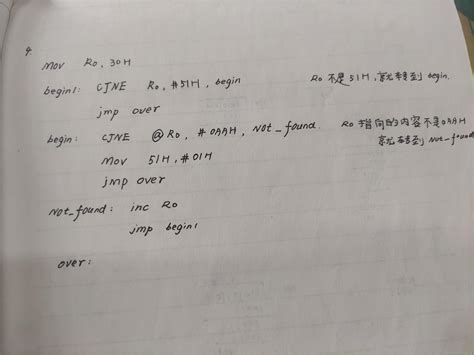 4.
Mov R0, 30H
begin1: CJNE R0, #51H, begin R0 不是 51H, 就转到 begin.
jmp over
begin: CJNE @R0, #0AAH, Not_found. R0 指向的内容不是0AAH
就转到 Not_found
Mov 51H, #01H
jmp over
Not_found: inc R0
jmp begin1
over: